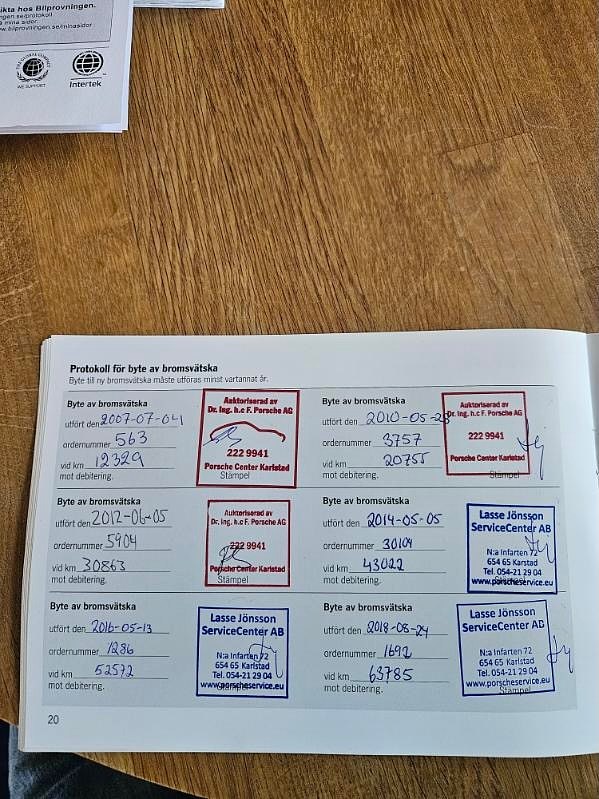 ikta hos Bilprovningen.
ngen.se/protokoll
å mina sidor
w.bilprovningen.se/minasidor
THE GLOBAL COMPACT
WE SUPPORT
Intertek
Protokoll för byte av bromsvätska
Byte till ny bromsvätska måste utföras minst vartannat år.
Byte av bromsvätska
utfört den 2007-07-04
ordernummer 563
vid km 12329
mot debitering.
Auktoriserad av
Dr. Ing. h.c F. Porsche AG
222 9941
Porsche Center Karlstad
Stämpel
Byte av bromsvätska
utfört den 2010-05-28
ordernummer 3757
vid km 20755
mot debitering.
Auktoriserad av
Dr. Ing. h.c F. Porsche AG
222 9941
Porsche Center Karlstad
Stämpel
Byte av bromsvätska
utfört den 2012-06-05
ordernummer 5904
vid km 30863
mot debitering.
Auktoriserad av
Dr. Ing. h.c F. Porsche AG
222 9941
Porsche Center Karlstad
Stämpel
Byte av bromsvätska
utfört den 2014-05-05
ordernummer 30104
vid km 43022
mot debitering.
Lasse Jönsson
ServiceCenter AB
N:a Infarten 72
654 65 Karlstad
Tel. 054-21 29 04
www.porscheservice.eu
Stämpel
Byte av bromsvätska
utfört den 2016-05-13
ordernummer 1286
vid km 52572
mot debitering.
Lasse Jönsson
ServiceCenter AB
N:a Infarten 72
654 65 Karlstad
Tel. 054-21 29 04
www.porscheservice.eu
Stämpel
Byte av bromsvätska
utfört den 2018-08-24
ordernummer 1692
vid km 63785
mot debitering.
Lasse Jönsson
ServiceCenter AB
N:a Infarten 72
654 65 Karlstad
Tel. 054-21 29 04
www.porscheservice.eu
Stämpel
20